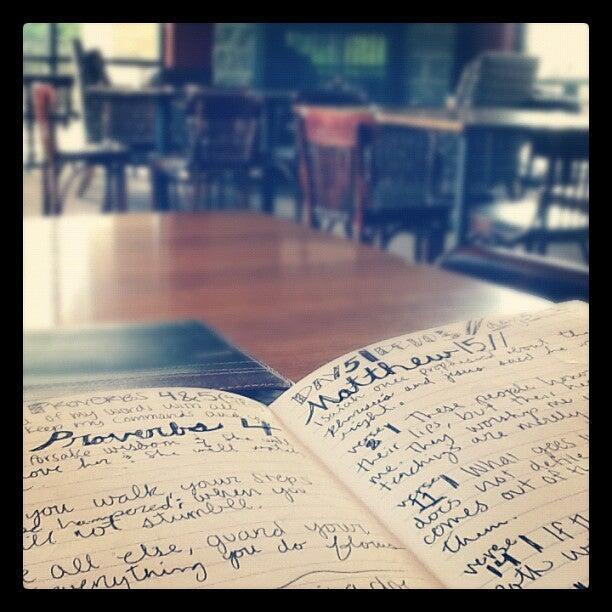 PROVERBS 4&5
of my words with all
keep my commands
Proverbs 4
forsake wisdom & she will
love her & she will
you walk, your steps
be hampered; when you
will not stumble.
all else, guard your
everything you do flows
DAY 5
Matthew 15 //
Isaiah once prophesied about the
Pharisees and Jesus said he
right
verse 8 | These people honor
their lips, but their
me. They worship
teachings are merely
verse 11 | What goes
does not defile
comes out of
them.
verse 14 | If the
both